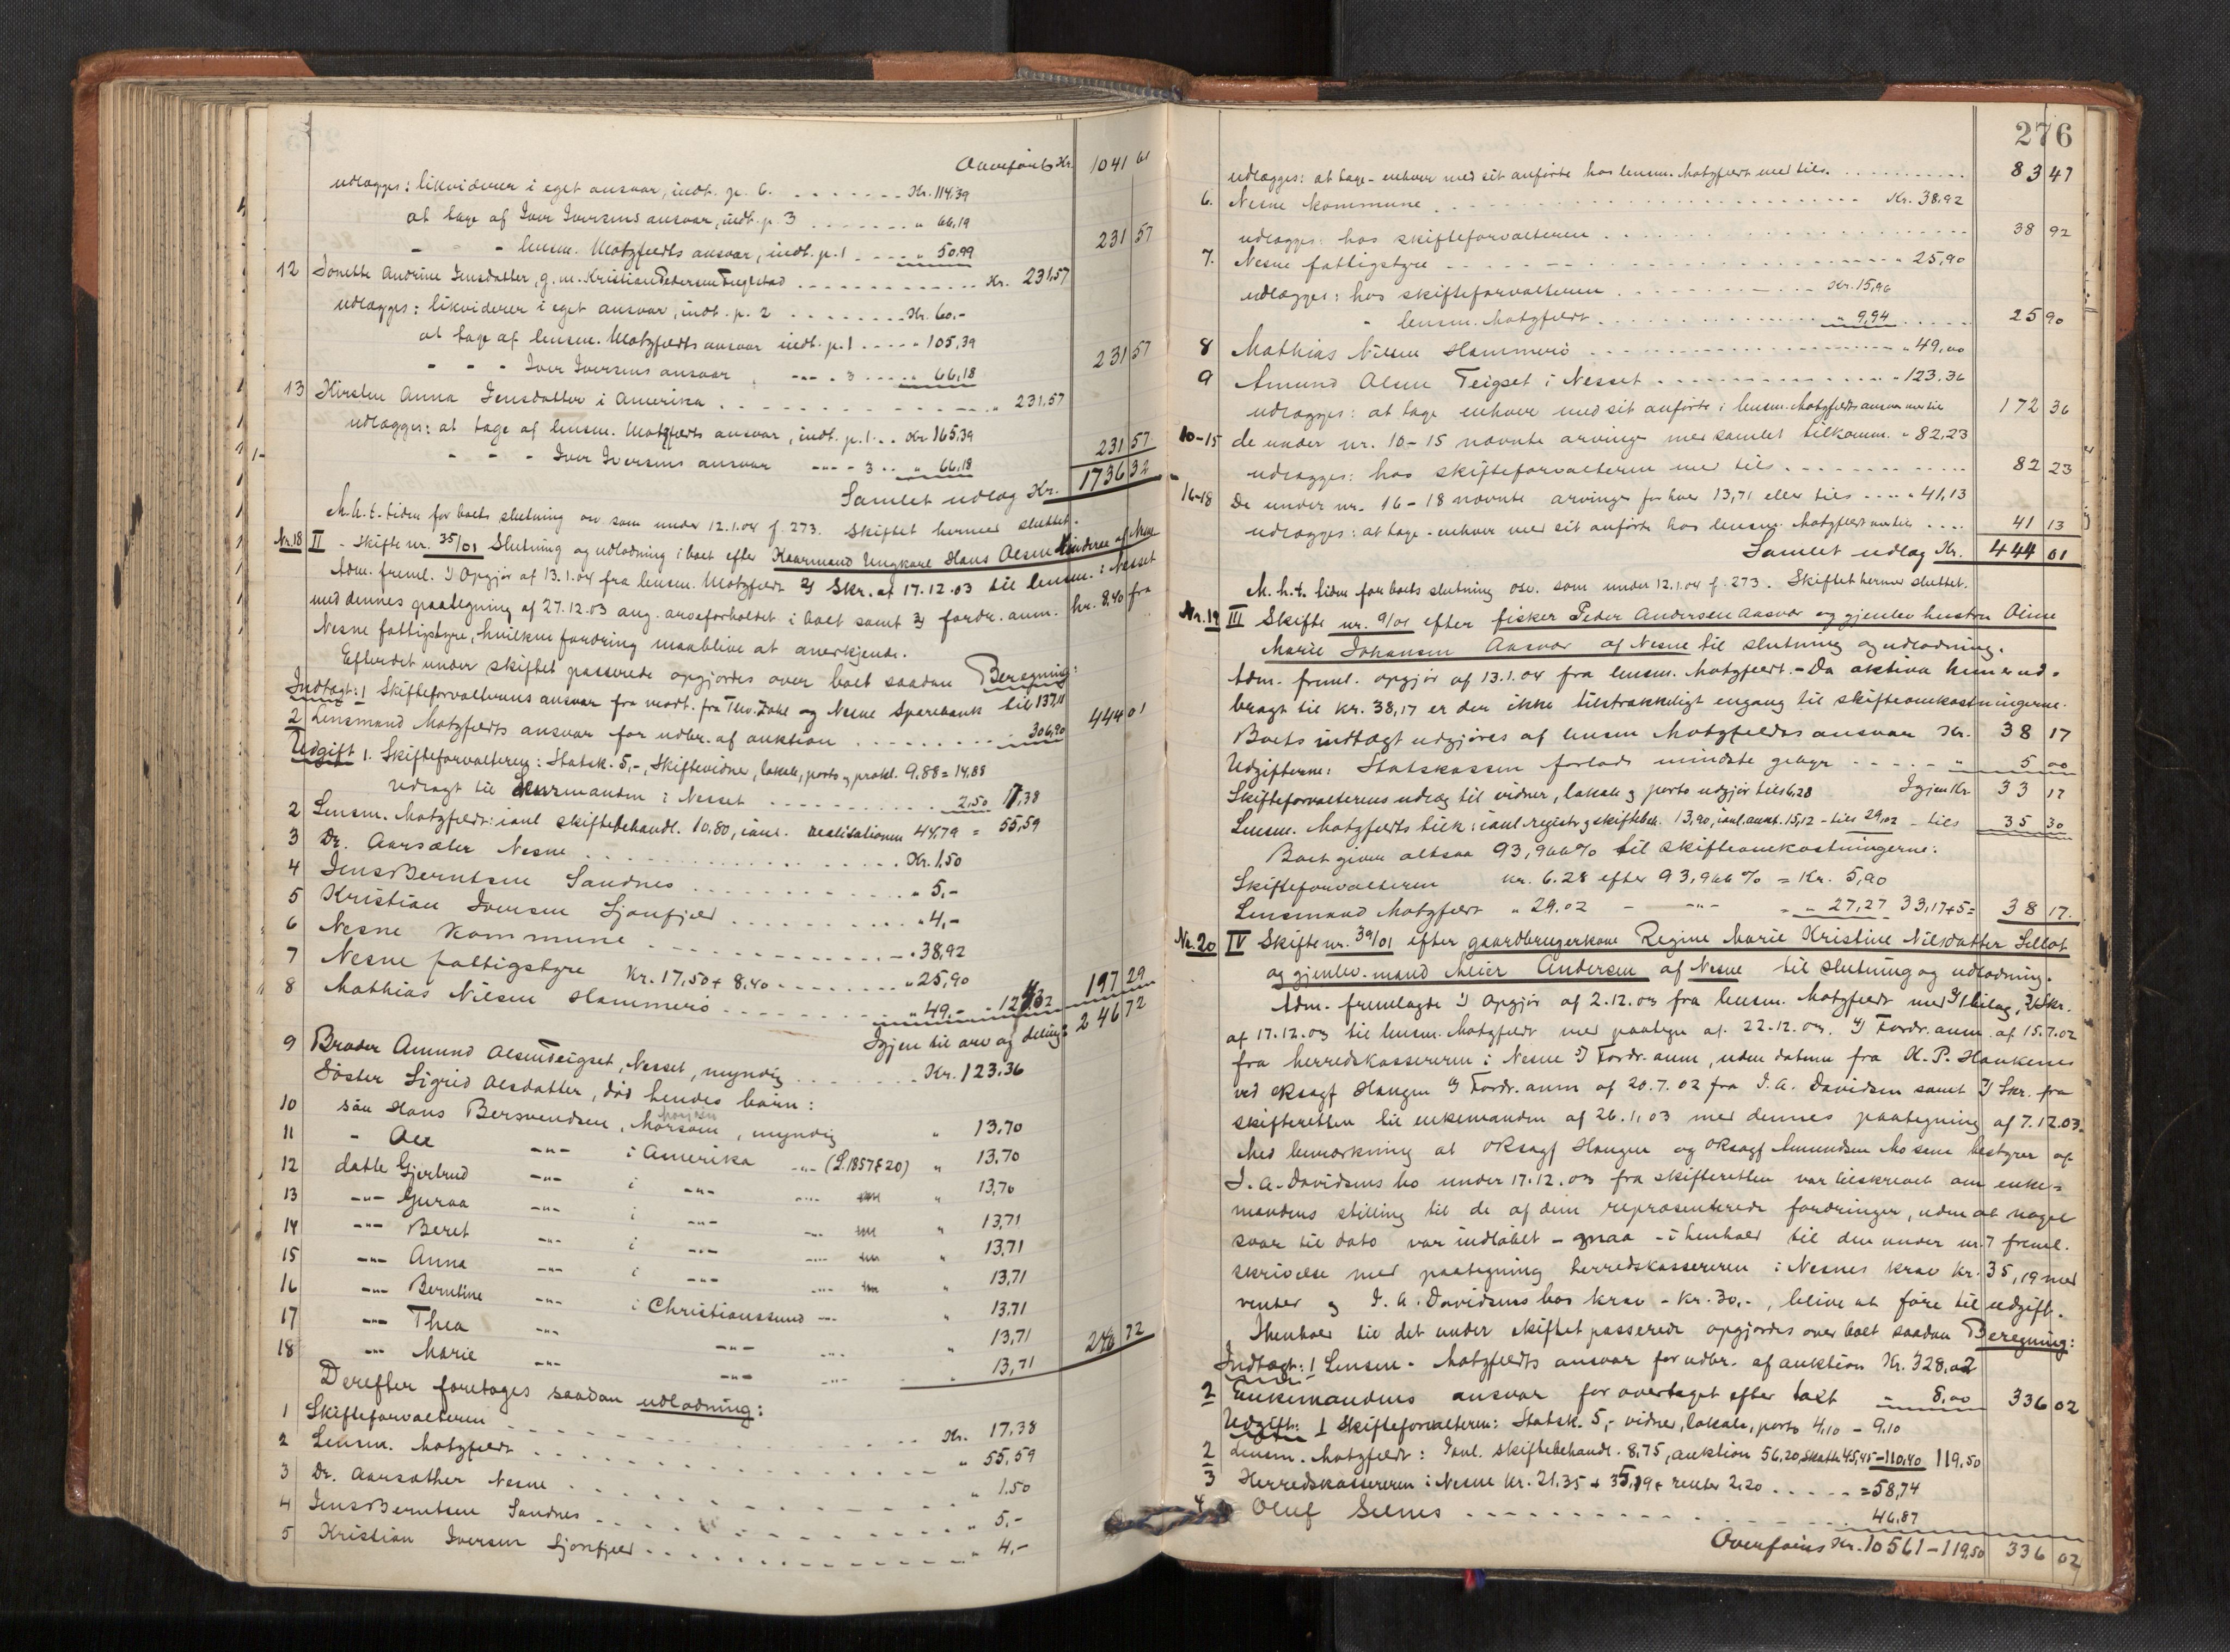 Overført Kr. 1041 61
udlægges: likviderer i eget ansvar, indt. p. 6. Kr. 114.39
at tage af Iver Iversens ansvar, indt. p. 3 " 66,19
- - lensm. Motzfeldts ansvar, indt. p. 1 " 50.99 231 57
12 Jonette Andrine Jensdatter, g. m. Kristian Pedersen Fuglstad Kr. 231.57
udlægges: likviderer i eget ansvar, indt. p. 2 Kr. 60.-
at tage af lensm. Motzfeldts ansvar indt. p. 1 " 105,39
- - - Iver Iversens ansvar -"- - 3 " 66,18 231 57
13 Kirsten Anna Jensdatter i Amerika " 231.57
udlægges: at tage af lensm. Motzfeldts ansvar, indt. p. 1 Kr. 165.39
- - - Iver Iversens ansvar -"- - 3 " 66,18 231 57
Samlet udlæg Kr. 1736 32
M.h.t. tiden for boets slutning osv. som under 12.1.04 f. 273. Skiftet hermed sluttet.
Nr. 18 II - Skifte nr. 35/01 Slutning og udlodning i boet efter Kaarmand Ungkarl Hans Olsen
Adm. freml. 1) Opgjør af 13.1.04 fra lensm. Motzfeldt 2) Skr. af 17.12.03 til lensm. i Nesset
med dennes paategning af 27.12.03 ang. arveforholdet i boet samt 3) fordr. anm. kr. 8,40 fra
Nesne fattigstyre, hvilken fordring maablive at anerkjende.
Efter det under skiftet passerede opgjordes over boet saadan Beregning:
Indtægt: 1 Skifteforvalterens ansvar fra modt. fra Thv. Zahl og Nesne Sparebank til 137,11
2 Lensmand Motzfeldts ansvar for udbr. af auktion 306,90 444 01
Udgift 1. Skifteforvalteren: Statsk. 5,-, Skiftevidner, lokale, porto og protokl. 9.88 = 14,88
Udlagt til Lensmanden i Nesset 2,50 17,38
2 Lensm. Motzfeldt: ianl skiftebehandl. 10.80, ianl. realisationen 44.79 = 55,59
3 Dr. Aarsæter Nesne Kr. 1.50
4 Jens Berntsen Sandnes " 5,-
5 Kristian Iversen Sjonfjeld " 4,-
6 Nesne kommune " 38,92
7 Nesne fattigstyre Kr. 17,50 + 8,40 " 25,90
8 Mathias Nilsen Hammerö " 49.- - 124,32 197 29
Igjen til arv og deling: 246 72
9 Broder Amund Olsen Teigset, Nesset, myndig Kr. 123.36
Söster Sigrid Olsdatter, död hendes börn:
10 sön Hans Bersvendsen, myndig " 13.70
11 - Ole -"- i Amerika -"- (S.1857 f 20) " 13.70
12 datter Gjertrud -"- i -"- -"- " 13,70
13 -"- Guroa -"- i -"- -"- " 13,71
14 -"- Beret -"- i -"- -"- " 13,71
15 -"- Anna -"- i -"- -"- " 13,71
16 -"- Berntine -"- i Christianssund -"- " 13.71
17 -"- Thea -"- -"- -"- " 13,71
18 -"- Marie -"- -"- -"- " 13,71 246 72
Derefter foretages saadan udlodning:
1 Skifteforvalteren Kr. 17,38
2 Lensm. Motzfeldt " 55,59
3 Dr. Aarsæther Nesne " 1.50
4 Jens Berntsen Sandnes " 5.-
5 Kristian Iversen Sjonfjeld " 4,-
276
udlægges: at tage - enhver med sit anførte hos lensm. Motzfeldt med tils. 83 47
6. Nesne Kommune Kr. 38,92
udlægges: hos skifteforvalteren 38 92
7. Nesne fattigstyre " 25,90
udlægges: hos skifteforvalteren Kr. 15,96
- lensm. Motzfeldt " 9,94 25 90
8 Mathias Nilsen Hammerö " 49,00
9 Amund Olsen Teigset i Nesset " 123.36
udlægges: at tage enhver med sit anførte i lensm. Motzfeldts ansvar med tils 172 36
10-15 de under nr. 10-15 nævnte arvinger med samlet tilkomm. " 82,23
udlægges: hos skifteforvalteren med tils 82 23
16-18 De under nr. 16-18 nævnte arvinger for hver 13,71 eller tils " 41,13
udlægges: at tage - enhver med sit anførte hos lensm. Motzfeldt med tils 41 13
Samlet udlæg Kr. 444 01
M.h.t. tiden for boets slutning osv. som under 12.1.04 f. 273. Skiftet hermed sluttet.
Nr. 19 III Skifte nr. 9/01 efter fisker Peder Andersen Aasvær og gjenlev hustru Oline
Marie Johansen Aasvær af Nesne til slutning og udlodning.
Adm. freml. opgjør af 13.1.04 fra lensm. Motzfeldt. - Da aktiva kun er ud-
bragt til kr. 38,17 er der ikke tilstrækkeligt engang til skifteomkostningerne.
Boets indtægt udgjøres af lensm Motzfeldts ansvar Kr. 38 17
Udgifterne: Statskassen forlods mindste gebyr " 5 00
Skifteforvalterens udlæg til vidner, lokale og porto udgjør tils 6,28 Igjen Kr. 33 17
Lensm. Motzfeldts tilk. ianl. registr. og skiftebeh. 13,90, ianl. aukt. 15,12 - tils 29,02 - tils 35 30
Boet giver altsaa 93,966% til skifteomkostningerne:
Skifteforvalteren kr. 6.28 efter 93,966 % = Kr. 5,90
Lensmand Motzfeldt " 29.02 - -"- " 27,27 33,17+5= 38 17.
Nr. 20 IV Skifte nr. 39/01 efter gaardbrugerkone Regine Marie Kristine Nilsdatter
og gjenlev. mand Meier Andersen af Nesne til slutning og udlodning.
Adm. fremlagde 1) Opgjør af 2.12.03 fra lensm. Motzfeldt med 1 bilag, 2) Skr.
af 17.12.03 til lensm. Motzfeldt med paategn af. 22.12.03. 4) Fordr. anm. af 15.7.02
fra herredskassereren i Nesne 5) Fordr. anm, uden datum fra H. P. Haukenes
ved oksagf Haugen 6) Fordr. anm af 20.7.02 fra J. A. Davidsen samt 7) Skr. fra
skifteretten til enkemanden af 26.1.03 med dennes paategning af 7.12.03.
Med bemærkning at oksagf Haugen og oksagf Amundsen Mo som bestyrer af
J. A. Davidsens bo under 17.12.03 fra skifteretten var tilskrevet om enke-
mandens stilling til de af dem repræsenterede fordringer, uden at noget
svar til dato var indløbet - maa - i henhold til den under nr. 7 freml.
skrivelse med paategning herredskassereren i Nesnes krav kr. 35,19 med
renter og J. A. Davidsens bos krav - kr. 30.-, blive at føre til udgift.
Ihenhold til det under skiftet passerede opgjordes over boet saadan Beregning:
Indtægt: 1 Lensm. Motzfeldts ansvar for udbr. af auktion Kr. 328,02
2 Enkemandens ansvar for overtaget efter takt " 8,00 336 02
Udgift: 1 Skifteforvalteren: Statsk. 5,- vidner, lokale, porto 4,10 - 9,10
2 Lensm. Motzfeldt: Ianl. skiftebehandl. 8,75, auktion 56,20, skatt. 45,45 - 110,40 119,50
3 Herredskassereren i Nesne kr. 21.35 + 35,19 + renter 2.20 = 58,74
4 Oluf Selnes 46.87
Overføres Kr. 105 61 - 119,50 336 02